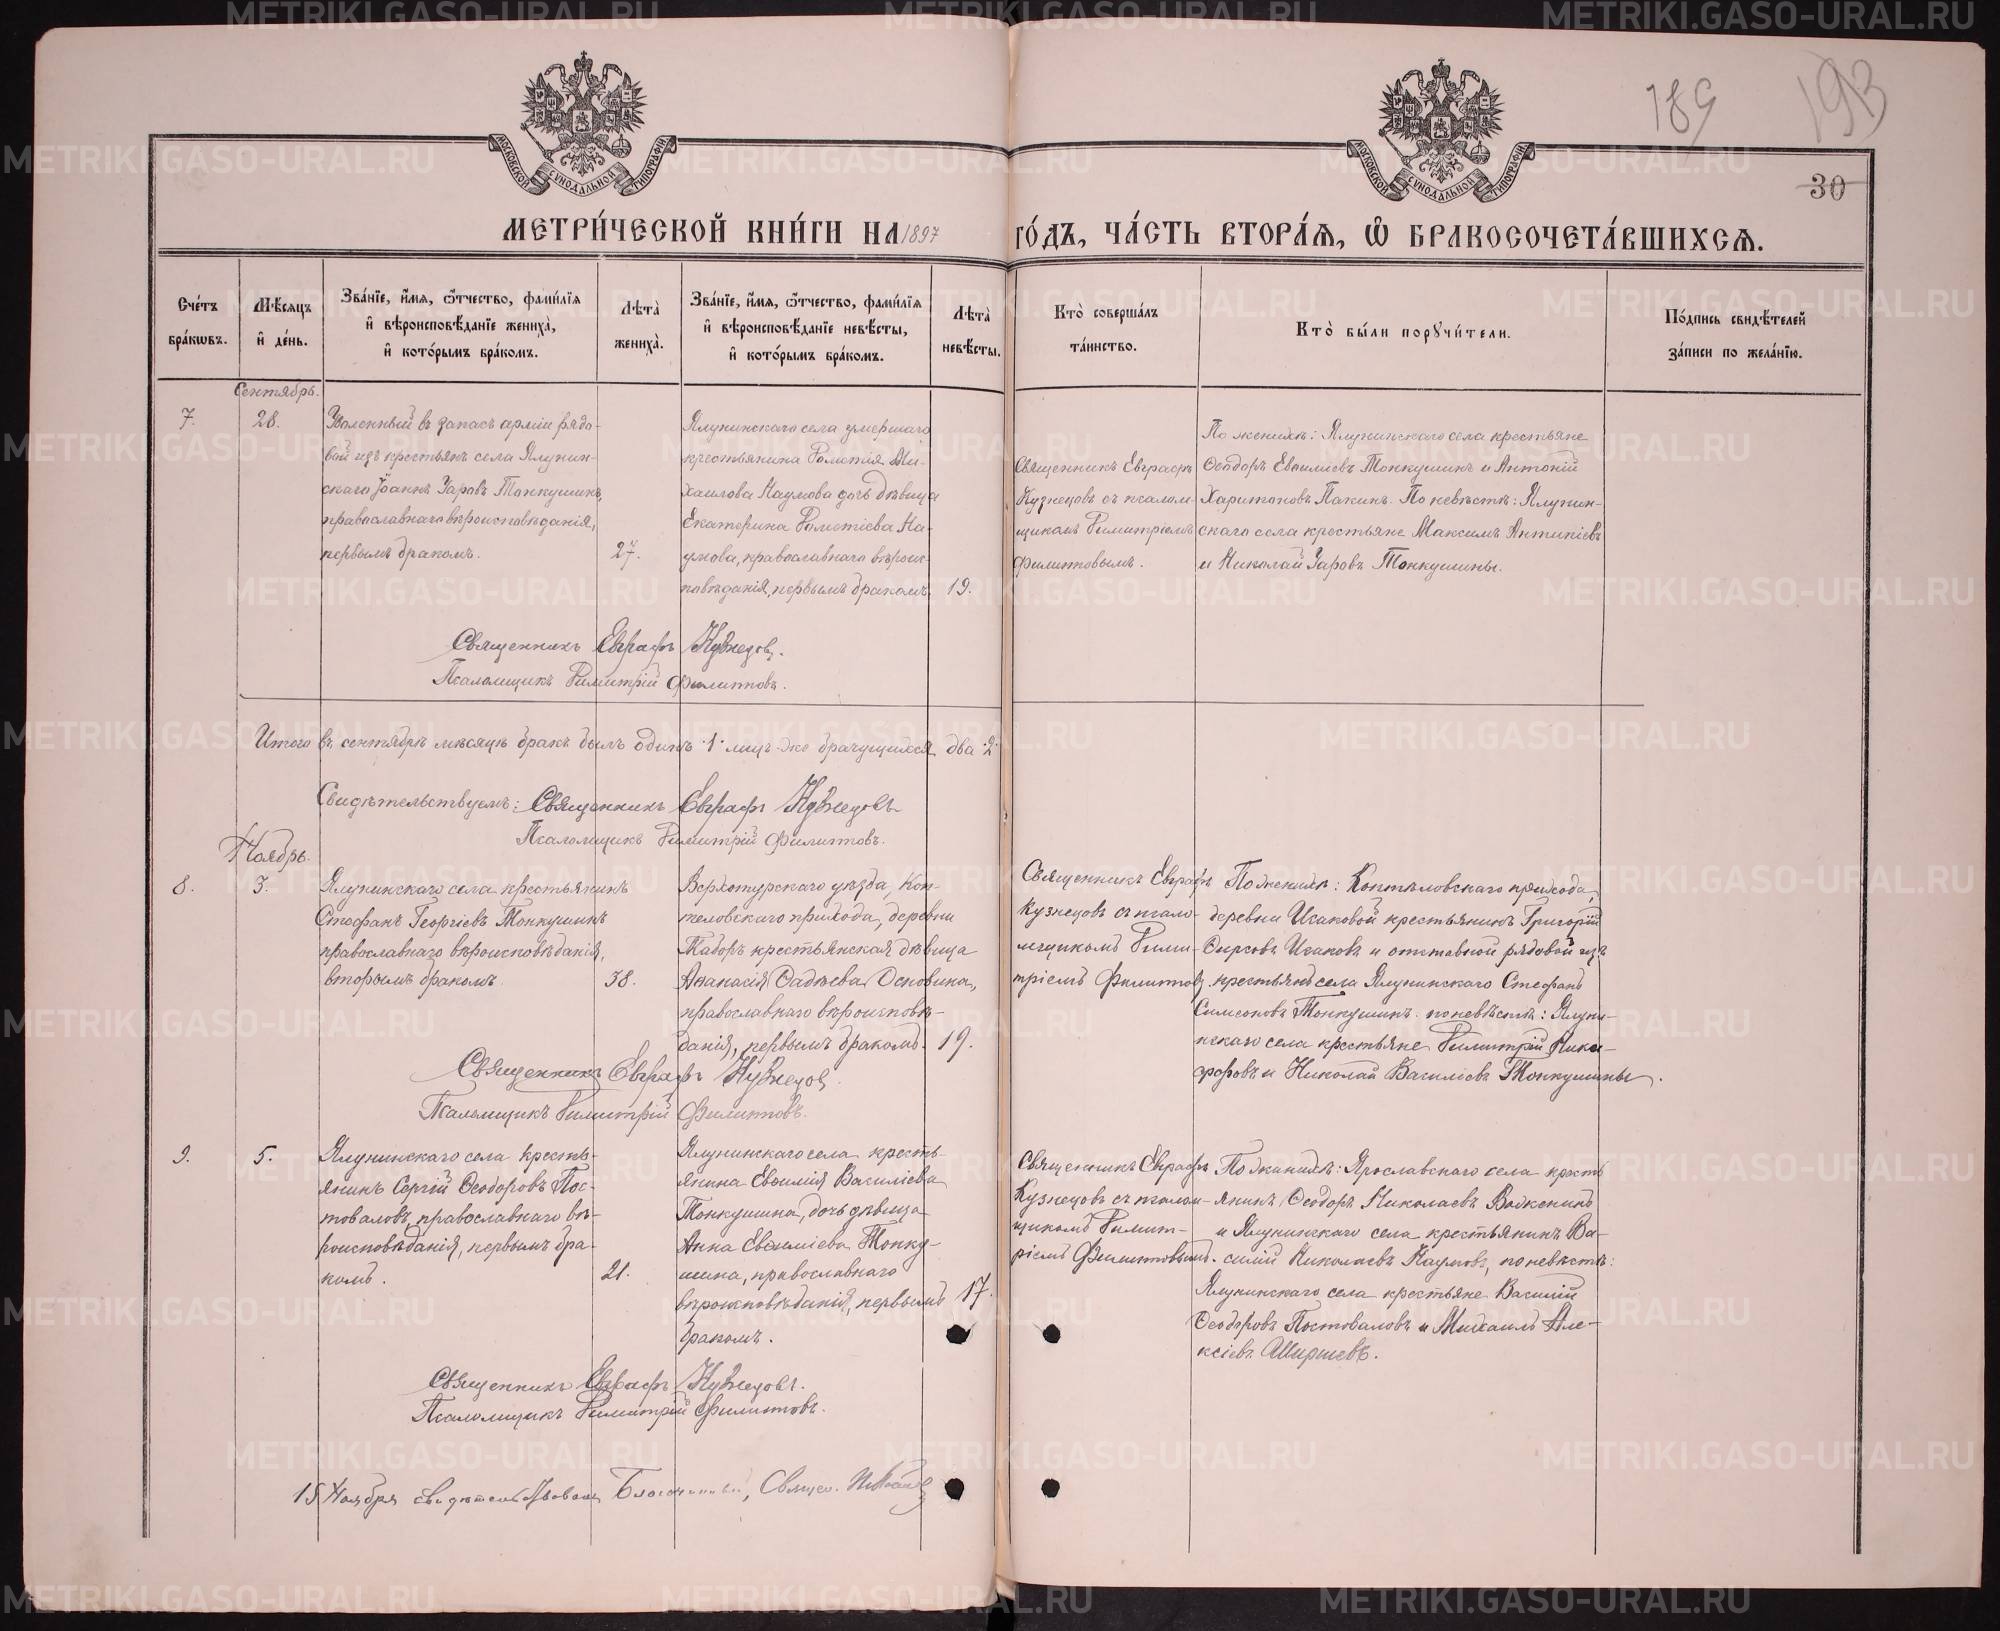 189
193
30
МОСКОВСКОЙ СѴНОДАЛЬНОЙ ТИПОГРАФІИ
МОСКОВСКОЙ СѴНОДАЛЬНОЙ ТИПОГРАФІИ
МЕТРИ́ЧЕСКОЙ КНИ́ГИ НА 1897 ГО́ДЪ, ЧА́СТЬ ВТОРА́Ѧ, Ѡ҆ БРАКОСОЧЕТА́ВШИХСѦ.
Сче́тъ бра́кѡвъ.
Мѣ́сѧцъ и҆ де́нь.
Зва́нїе, и҆́мѧ, ѻ҆́тчество, фами́лїѧ и҆ вѣроисповѣ́данїе жениха̀, и҆ кото́рымъ бра́комъ.
Лѣ́та̀ жениха̀.
Зва́нїе, и҆́мѧ, ѻ҆́тчество, фами́лїѧ и҆ вѣроисповѣ́данїе невѣ́сты, и҆ кото́рымъ бра́комъ.
Лѣ́та̀ невѣ́сты.
Кто̀ соверша́лъ та́инство.
Кто̀ бы́ли порꙋчи́тели.
По́дпись свидѣ́телей за́писи по жела́нїю.
Сентябрь.
7.
28.
Уволенный въ запасъ арміи рядо-
вой изъ крестьянъ села Ялунин-
скаго Іоаннъ Уаровъ Тонкушинъ,
православнаго вѣроисповѣданія,
первымъ бракомъ.
27.
Ялунинскаго села умершаго
крестьянина Дометія Ми-
хаилова Наумова дочь дѣвица
Екатерина Дометіева На-
умова, православнаго вѣроис-
повѣданія, первымъ бракомъ.
19.
Священникъ Евграфъ
Кузнецовъ съ псалом-
щикомъ Димитріемъ
Филитовымъ.
По женихѣ: Ялунинскаго села крестьяне
Ѳеодоръ Евѳиміевъ Тонкушинъ и Антоній
Харитоновъ Пакинъ. По невѣстѣ: Ялунин-
скаго села крестьяне Максимъ Антипіевъ
и Николай Уаровъ Тонкушины.
Священникъ Евграфъ Кузнецовъ.
Псаломщикъ Димитрій Филитовъ.
Итого въ сентябрѣ мѣсяцѣ бракъ былъ одинъ 1 лицъ же брачущихся два 2
Свидѣтельствуемъ: Священникъ Евграфъ Кузнецовъ
Псаломщикъ Димитрій Филитовъ.
Ноябрь.
8.
3.
Ялунинскаго села крестьянинъ
Стефанъ Георгіевъ Тонкушинъ
православнаго вѣроисповѣданія,
вторымъ бракомъ.
38.
Верхотурскаго уѣзда, Коп-
теловскаго прихода, деревни
Таборъ крестьянская дѣвица
Аѳанасія Ѳадѣева Основина,
православнаго вѣроисповѣ-
данія, первымъ бракомъ.
19.
Священникъ Евграфъ
Кузнецовъ съ псало-
мщикомъ Дими-
тріемъ Филитов.
По женихѣ: Коптѣловскаго прихода,
деревни Исаковой крестьянинъ Григорій
Ѳирсовъ Исаковъ и отставной рядовой изъ
крестьянъ села Ялунинскаго Стефанъ
Симеоновъ Тонкушинъ. по невѣстѣ: Ялуни-
нскаго села крестьяне Димитрій Ники-
форовъ и Николай Василіевъ Тонкушины.
Священникъ Евграфъ Кузнецов.
Псаломщикъ Димитрій Филитовъ.
9.
5.
Ялунинскаго села кресть-
янинъ Сергій Ѳеодоровъ Пос-
товаловъ, православнаго вѣ-
роисповѣданія, первымъ бра-
комъ.
21.
Ялунинскаго села кресть-
янина Евѳимія Василіева
Тонкушина, дочь дѣвица
Анна Евѳиміева Тонку-
шина, православнаго
вѣроисповѣданія, первымъ
бракомъ.
17.
Священникъ Евграфъ
Кузнецовъ съ псалом-
щикомъ Димит-
ріемъ Филитовымъ.
По женихѣ: Ярославскаго села кресть
янинъ Ѳеодоръ Николаевъ
и Ялунинскаго села крестьянинъ Ва-
силій Николаевъ Наумовъ, по невѣстѣ:
Ялунинскаго села крестьяне Василій
Ѳеодоровъ Постоваловъ и Михаилъ Але-
ксіевъ Ширшевъ.
Священникъ Евграфъ Кузнецовъ.
Псаломщикъ Димитрій Филитовъ.
15 Ноября свидѣтельствовалъ Благочинный, Священ.
METRIKI.GASO-URAL.RU